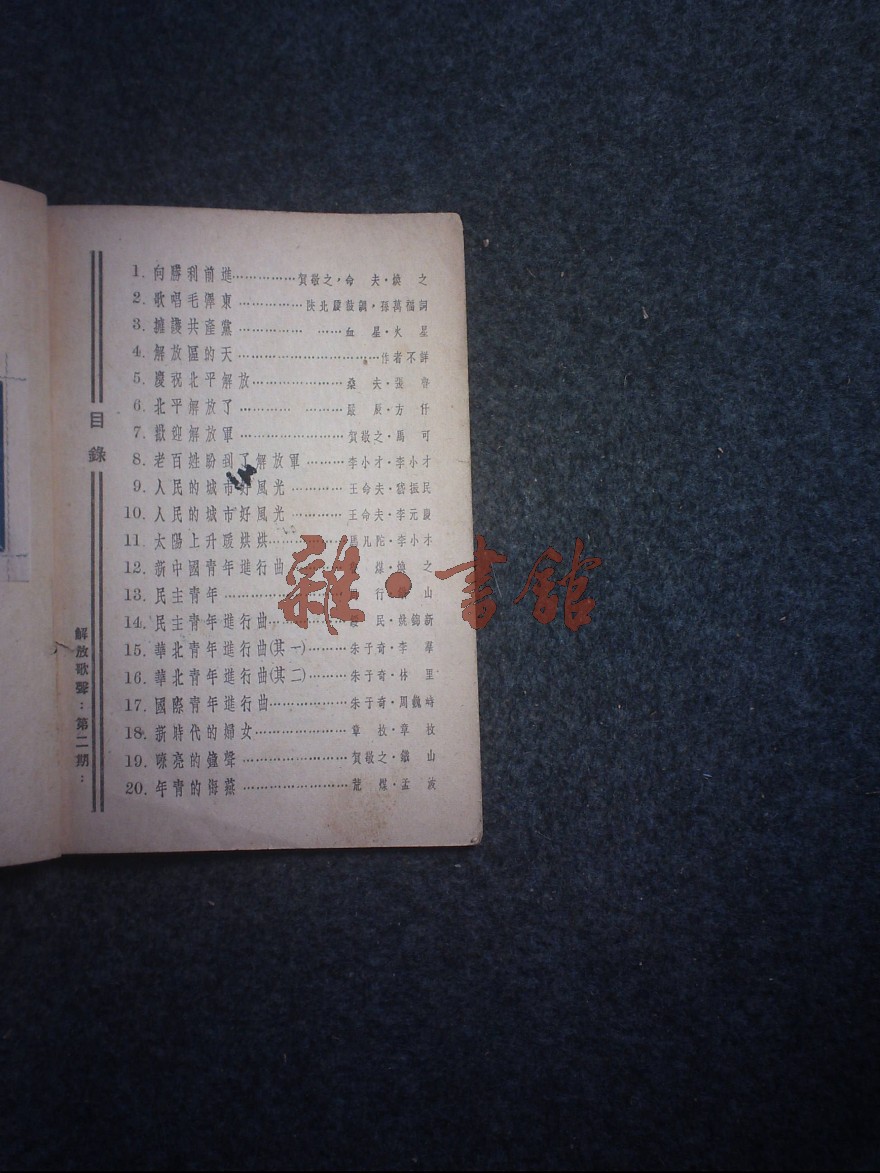 目錄
解放歌聲：第二期：
1. 向勝利前進……………賀敬之，命夫·煥之
2. 歌唱毛澤東……………陜北腰鼓調，孫萬福詞
3. 擁護共產黨…………………血星·火星
4. 解放區的天……………………………作者不詳
5. 慶祝北平解放…………………桑夫·張魯
6. 北平解放了…………………嚴辰·方仟
7. 歡迎解放軍……………………賀敬之·馬可
8. 老百姓盼到了解放軍………李小才·李小才
9. 人民的城市好風光…………王命夫·嵇振民
10. 人民的城市好風光…………王命夫·李元慶
11. 太陽上升暖烘烘……………馬凡陀·李小木
12. 新中國青年進行曲…………煤·煥之
13. 民主青年……………………行·山
14. 民主青年進行曲……………民·姚錦新
15. 華北青年進行曲(其一)………朱子奇·李羣
16. 華北青年進行曲(其二)………朱子奇·林里
17. 國際青年進行曲………………朱子奇·周巍峙
18. 新時代的婦女…………………章枚·章枚
19. 嘹亮的鐘聲……………………賀敬之·鐵山
20. 年青的海燕……………………荒煤·孟波
雜·書館